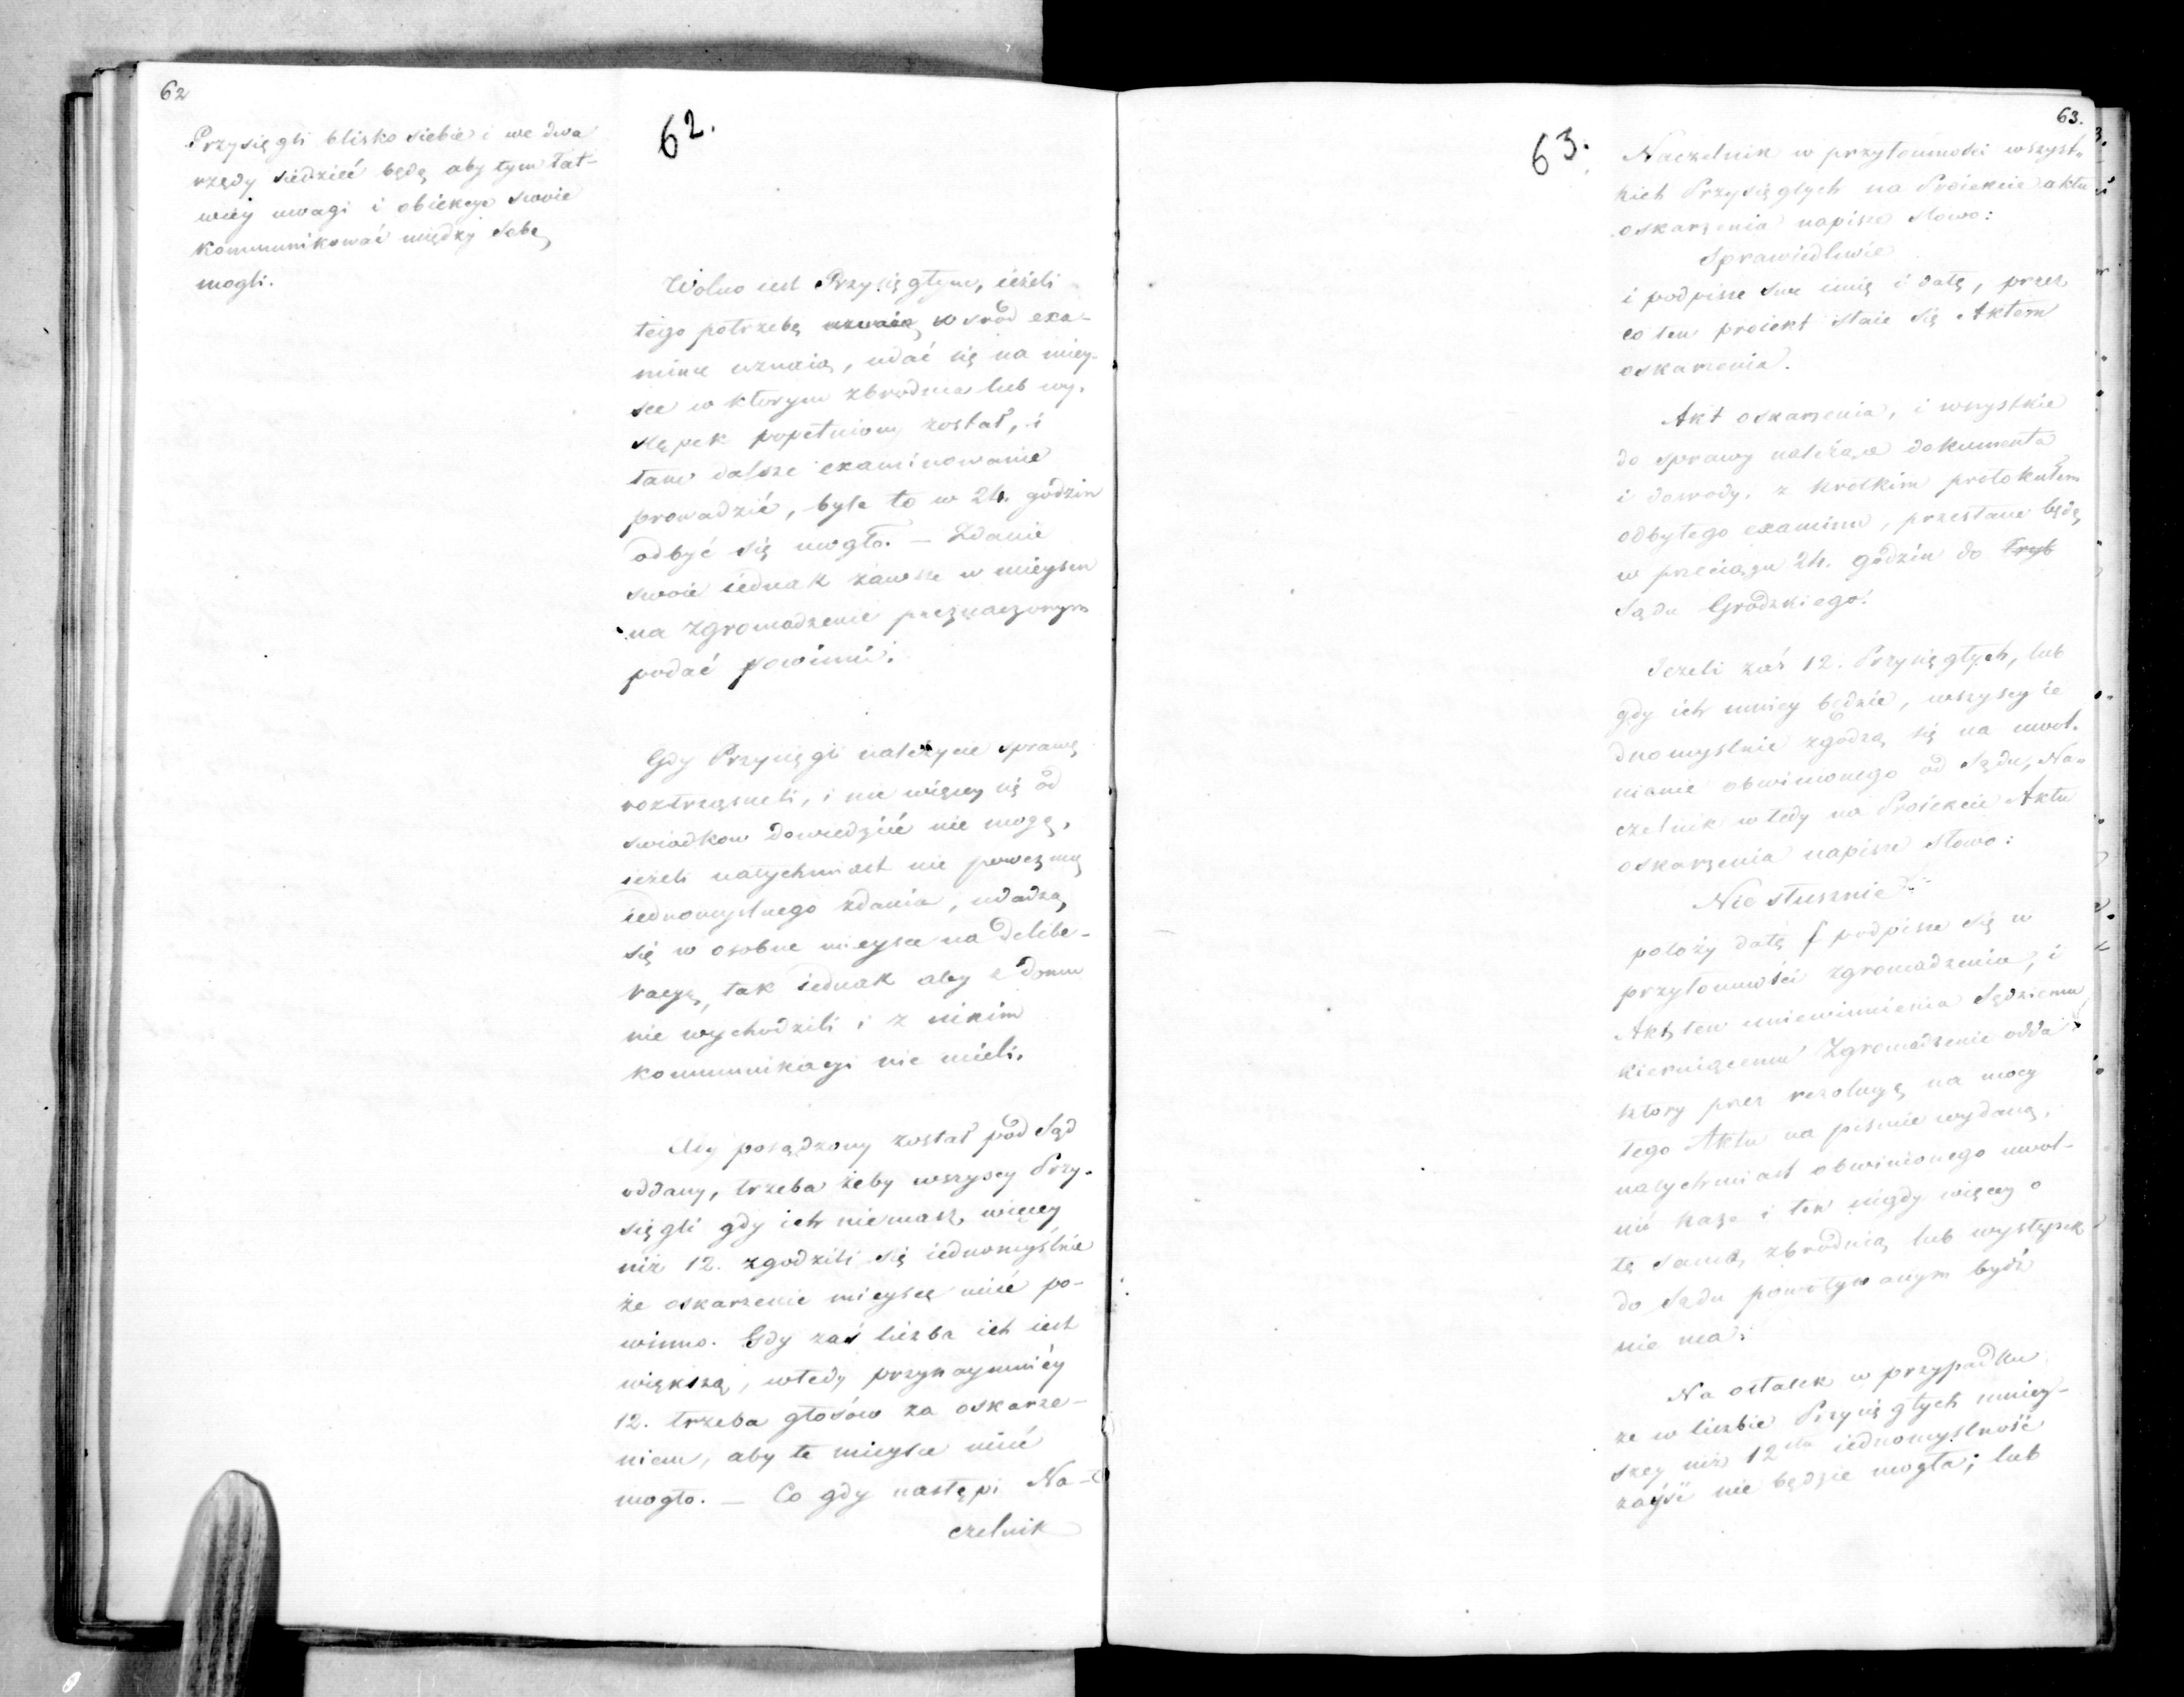 62
62.
Przysięgli blisko siebie i we dwa
rzędy siedzieć będą aby tym łat-
wiéy uwagi i obiekcye swoie
kommunikować między sobą
mogli.
Wolno iest Przysięgłym, ieżeli
tego potrzebę uznaią w sród exa-
minu uznaią, udać się na miey-
sce w ktorym zbrodnia lub wy-
stępek popełniony został, i
tam dalsze examinowanie
prowadzić, byle to w 24. godzin
odbyć się mogło. — Zdanie
swoie iednak zawsze w mieyscu
na zgromadzenie przeznaczonym
podać powinni.
Gdy Przysięgli należycie sprawę
roztrząsneli, i nic więcey się od
swiadkow dowiedzieć nie mogą,
ieżeli natychmiast nie powezmą
iednomyslnego zdania, udadzą
się w osobne mieysce na delibe-
racyę, tak iednak aby z domu
nie wychodzili i z nikim
kommunikacyi nie mieli.
Aby posądzony został pod Sąd
oddany, trzeba żeby wszyscy Przy-
sięgli gdy ich niemasz więcey
niż 12. zgodzili się iednomyślnie
że oskarzenie mieysce mieć po-
winno. Gdy zaś liczba ich iest
większą, wtedy przynaymniéy
12. trzeba głosów za oskarze-
niem, aby te mieysce mieć
mogło. — Co gdy nastąpi Na-
czelnik
63.
63.
Naczelnik w przytomności wszyst-
kich Przysięgłych na Proiekcie aktu
oskarzenia napisze słowo:
Sprawiedliwie
i podpisze swe imię i datę, przez
co ten proiekt staie się Aktem
oskarzenia.
Akt oskarzenia, i wszystkie
do sprawy należące dokumenta
i dowody, z krotkim protokułem
odbytego examinu, przesłane będą
w przeciągu 24. godzin do Tryb
Sądu Grodzkiego.
Jeżeli zaś 12. Przysięgłych, lub
gdy ich mniey będzie, wszyscy ie
dnomyslnie zgodzą się na uwol-
nienie obwinionego od Sądu, Na-
czelnik wtedy na Proiekcie Aktu
oskarzenia napisze słowo:
Niesłusznie
położy datę i podpisze się w
przytomności zgromadzenia, i
Akt ten uniewinnienia Sędziemu
kieruiącemu Zgromadzenie odda
ktory przez rezolucyę na mocy
tego Aktu na pismie wydaną,
natychmiast obwinionego uwol-
nić każe i ten nigdy więcey o
tę samą zbrodnią lub występek
do Sądu powoływanym bydź
nie ma.
Na ostatek w przypadku
że w liczbie Przysięgłych mniey-
szey niż 12stu iednomyslność
zayść nie będzie mogła; lub